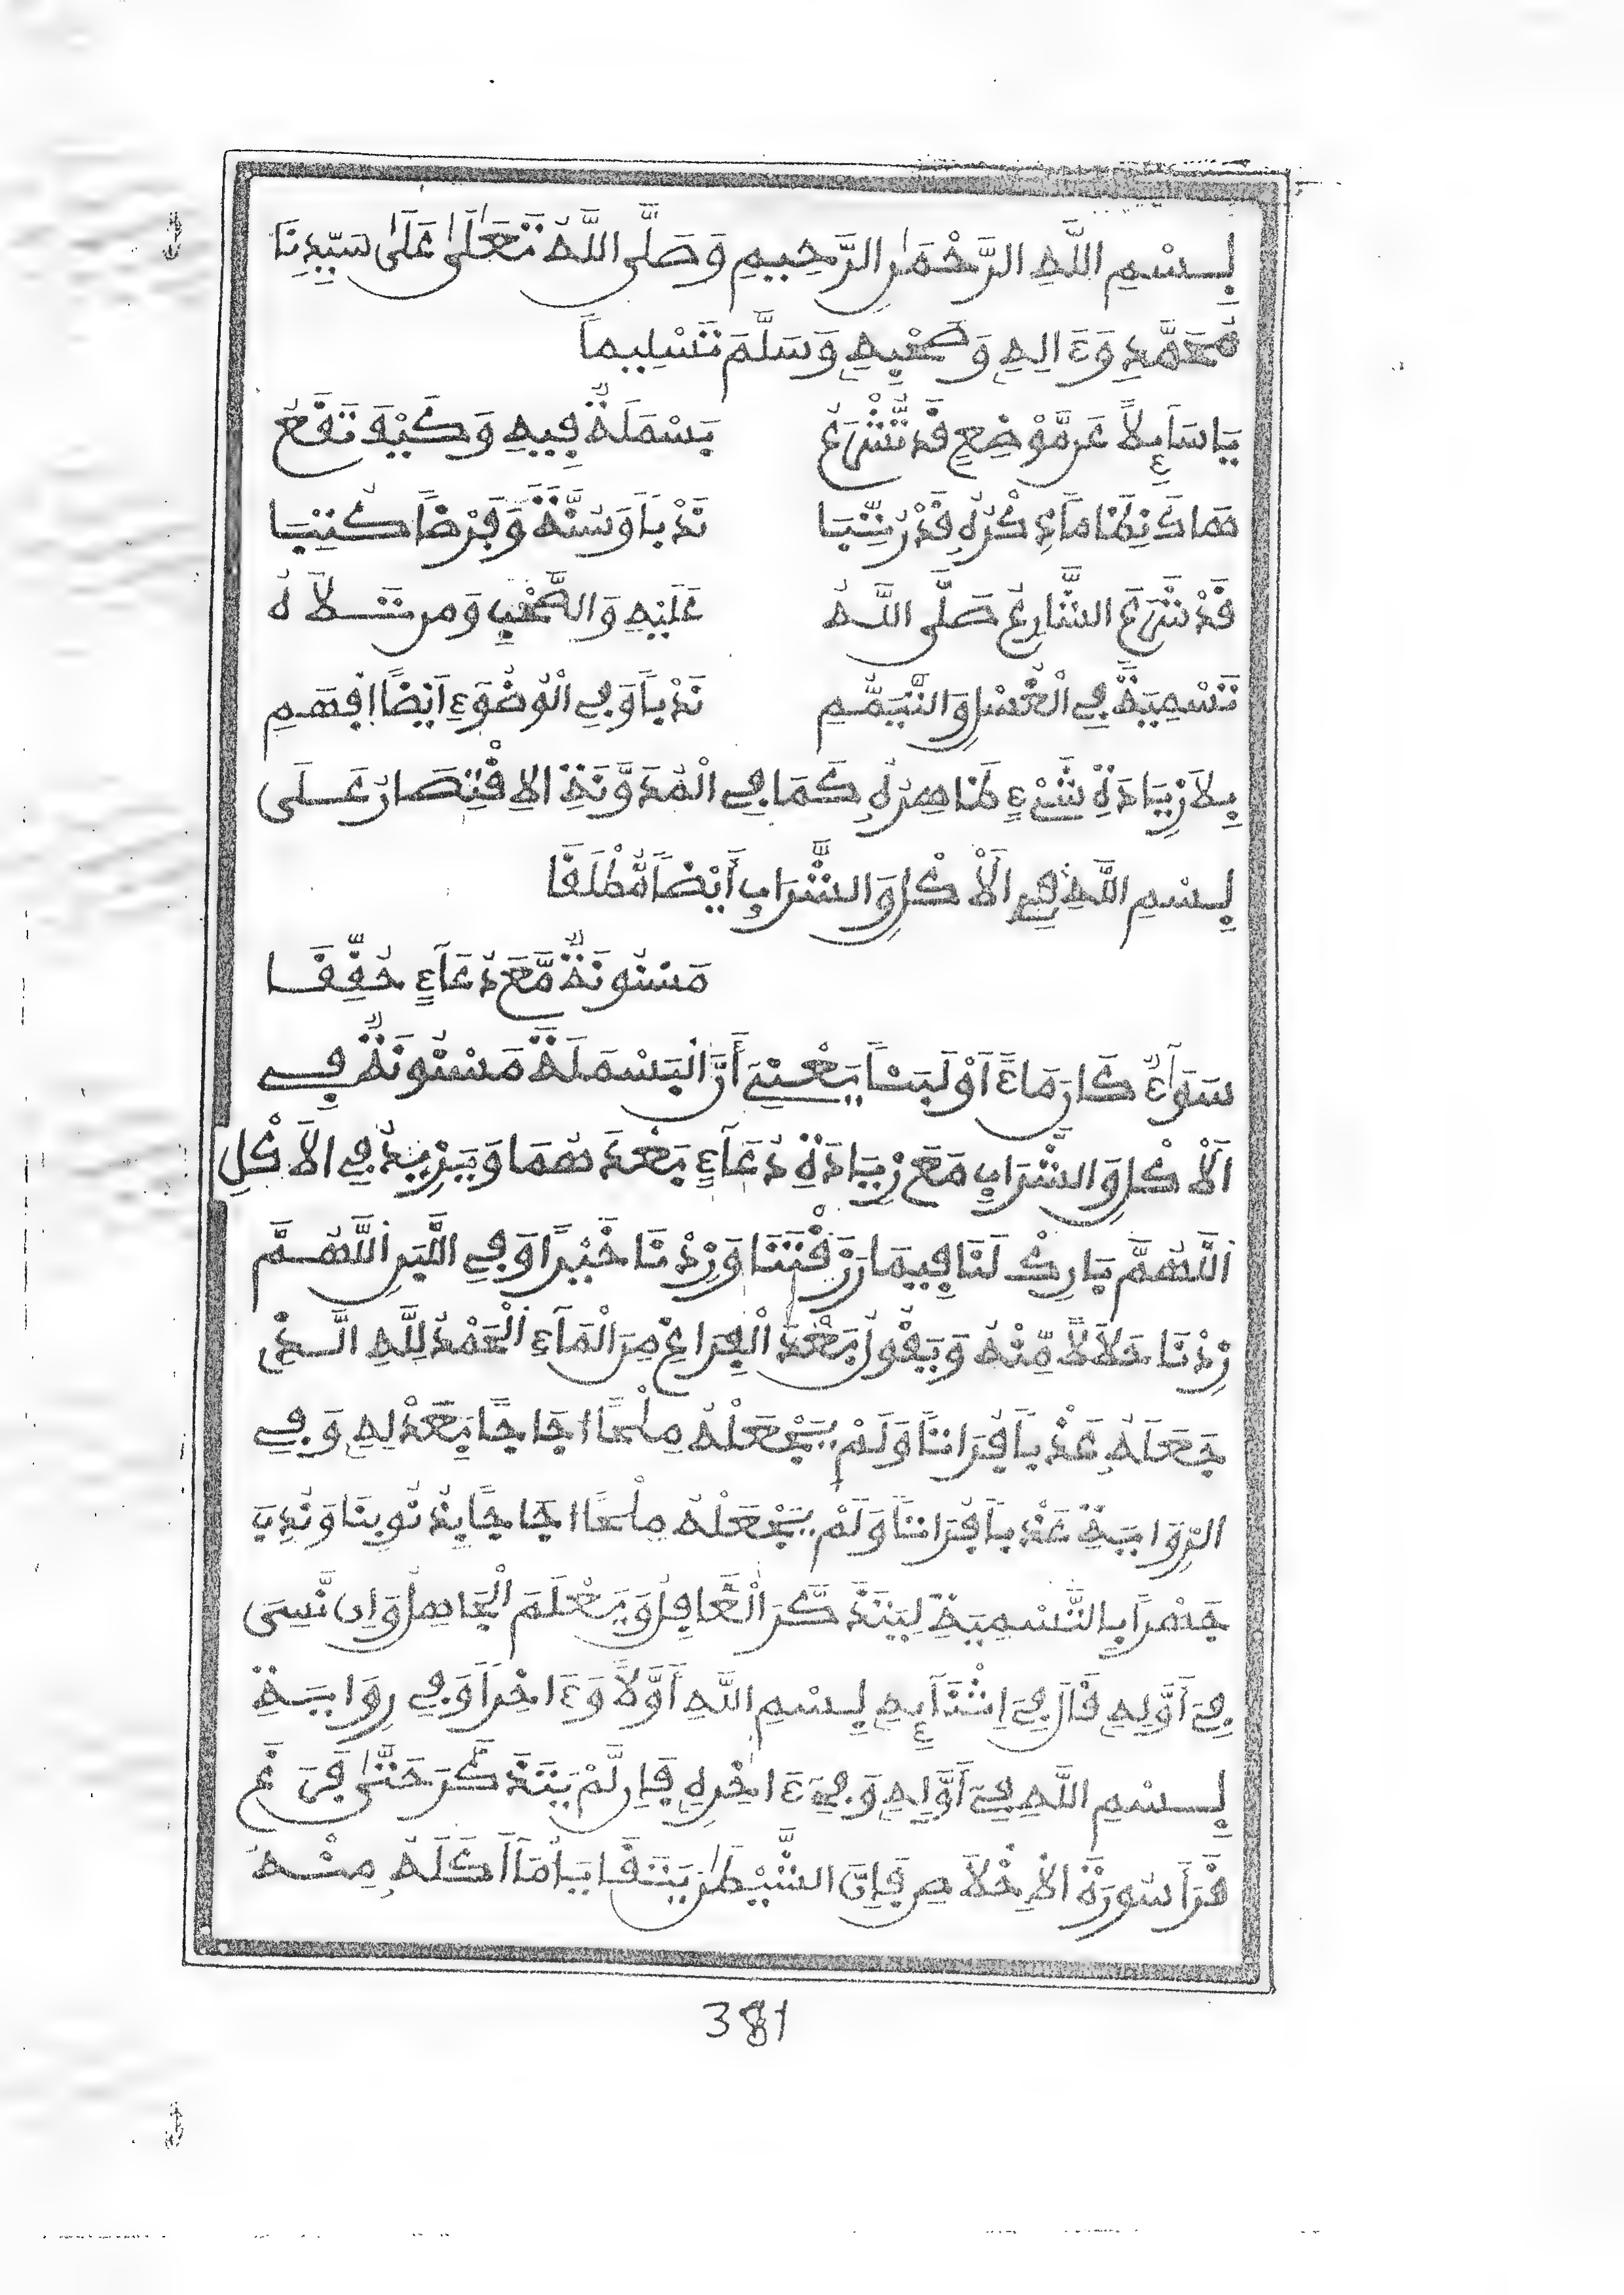 بِسْمِ اللَّهِ الرَّحْمَٰنِ الرَّحِيمِ وَصَلَّى اللَّهُ تَعَلَىٰ عَلَىٰ سَيِّدِنَا
مُحَمَّدٍ وَءَالِهِ وَصَحْبِهِ وَسَلَّمَ تَسْلِيماً
يَا سَآئِلاً عَن مَّوْضِعٍ قَد تُّشْرَعُ بَسْمَلَةٌ فِيهِ وَكَيْفَ تَقَعُ
هَاكَ نِظَاماً ذِكْرُهُ قَدْ رُتِّبَا نَدْباً وَسُنَّةً وَفَرْضاً كُتِبَا
قَدْ شَرَعَ الشَّارِعُ صَلَّى اللَّهُ عَلَيْهِ وَالصَّحْبِ وَمَن تَلاَهُ
تَسْمِيَةً فِي الْغُسْلِ وَالتَّيَمُّمِ نَدْباً وَفِي الْوُضُوءِ أَيْضاً افْهَمِ
بِلاَ زِيَادَةِ شَيْءٍ ظَاهِرُهُ كَمَا فِي الْمُدَوَّنَةِ الاِقْتِصَارُ عَلَى
بِسْمِ اللَّهِ فِي الْأَكْلِ وَالشَّرَابِ أَيْضاً مُّطْلَقَا
مَسْنُونَةٌ مَّعَ دُعَآءٍ حُقِّقَا
سَوَآءٌ كَانَ مَاءً أَوْ لَبَناً يَعْنِي أَنَّ الْبَسْمَلَةَ مَسْنُونَةٌ فِي
الْأَكْلِ وَالشَّرَابِ مَعَ زِيَادَةِ دُعَآءٍ بَعْدَهُمَا وَيَزِيدُ فِي الأَكْلِ
اللَّهُمَّ بَارِكْ لَنَا فِيمَا رَزَقْتَنَا وَزِدْنَا خَيْراً وَفِي اللَّبَنِ اللَّهُمَّ
زِدْنَا حَلاَلاً مِّنْهُ وَيَقُولُ بَعْدَ الْفِرَاغِ مِنَ الْمَآءِ الْحَمْدُ لِلَّهِ الَّذِي
جَعَلَهُ عَذْباً فُرَاتاً وَلَمْ يَجْعَلْهُ مِلْحاً اجَاجاً بِعَدْلِهِ وَفِي
الرِّوَايَةِ عَذْباً فُرَاتاً وَلَمْ يَجْعَلْهُ مِلْحاً اجَاجاً بِذُنُوبِنَا وَنُدِبَ
جَهْراً بِالتَّسْمِيَةِ لِيَتَذَكَّرَ الْغَافِلُ وَيَعْلَمَ الْجَاهِلُ وَإِن نَّسِىَ
فِي أَوَّلِهِ قَالَ فِي اِثْنَآئِهِ بِسْمِ اللَّهِ أَوَّلاً وَءَاخِراً وَفِي رِوَايَةِ
بِسْمِ اللَّهِ فِي أَوَّلِهِ وَفِي ءَاخِرِهِ فَإِن لَّمْ يَتَذَكَّرْ حَتَّىٰ فَرَغَ
قَرَأَ سُورَةَ الْإِخْلاَصِ فَإِنَّ الشَّيْطَٰنَ يَتَقَايَأُ مَا أَكَلَهُ مِنْهُ
381